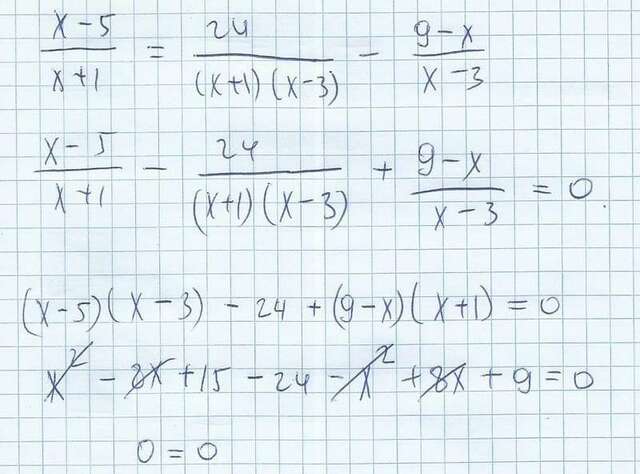 (x-5)/(x+1) = 24/((x+1)(x-3)) - (9-x)/(x-3)
(x-5)/(x+1) - 24/((x+1)(x-3)) + (9-x)/(x-3) = 0
(x-5)(x-3) - 24 + (9-x)(x+1) = 0
x² - 8x + 15 - 24 - x² + 8x + 9 = 0
0 = 0